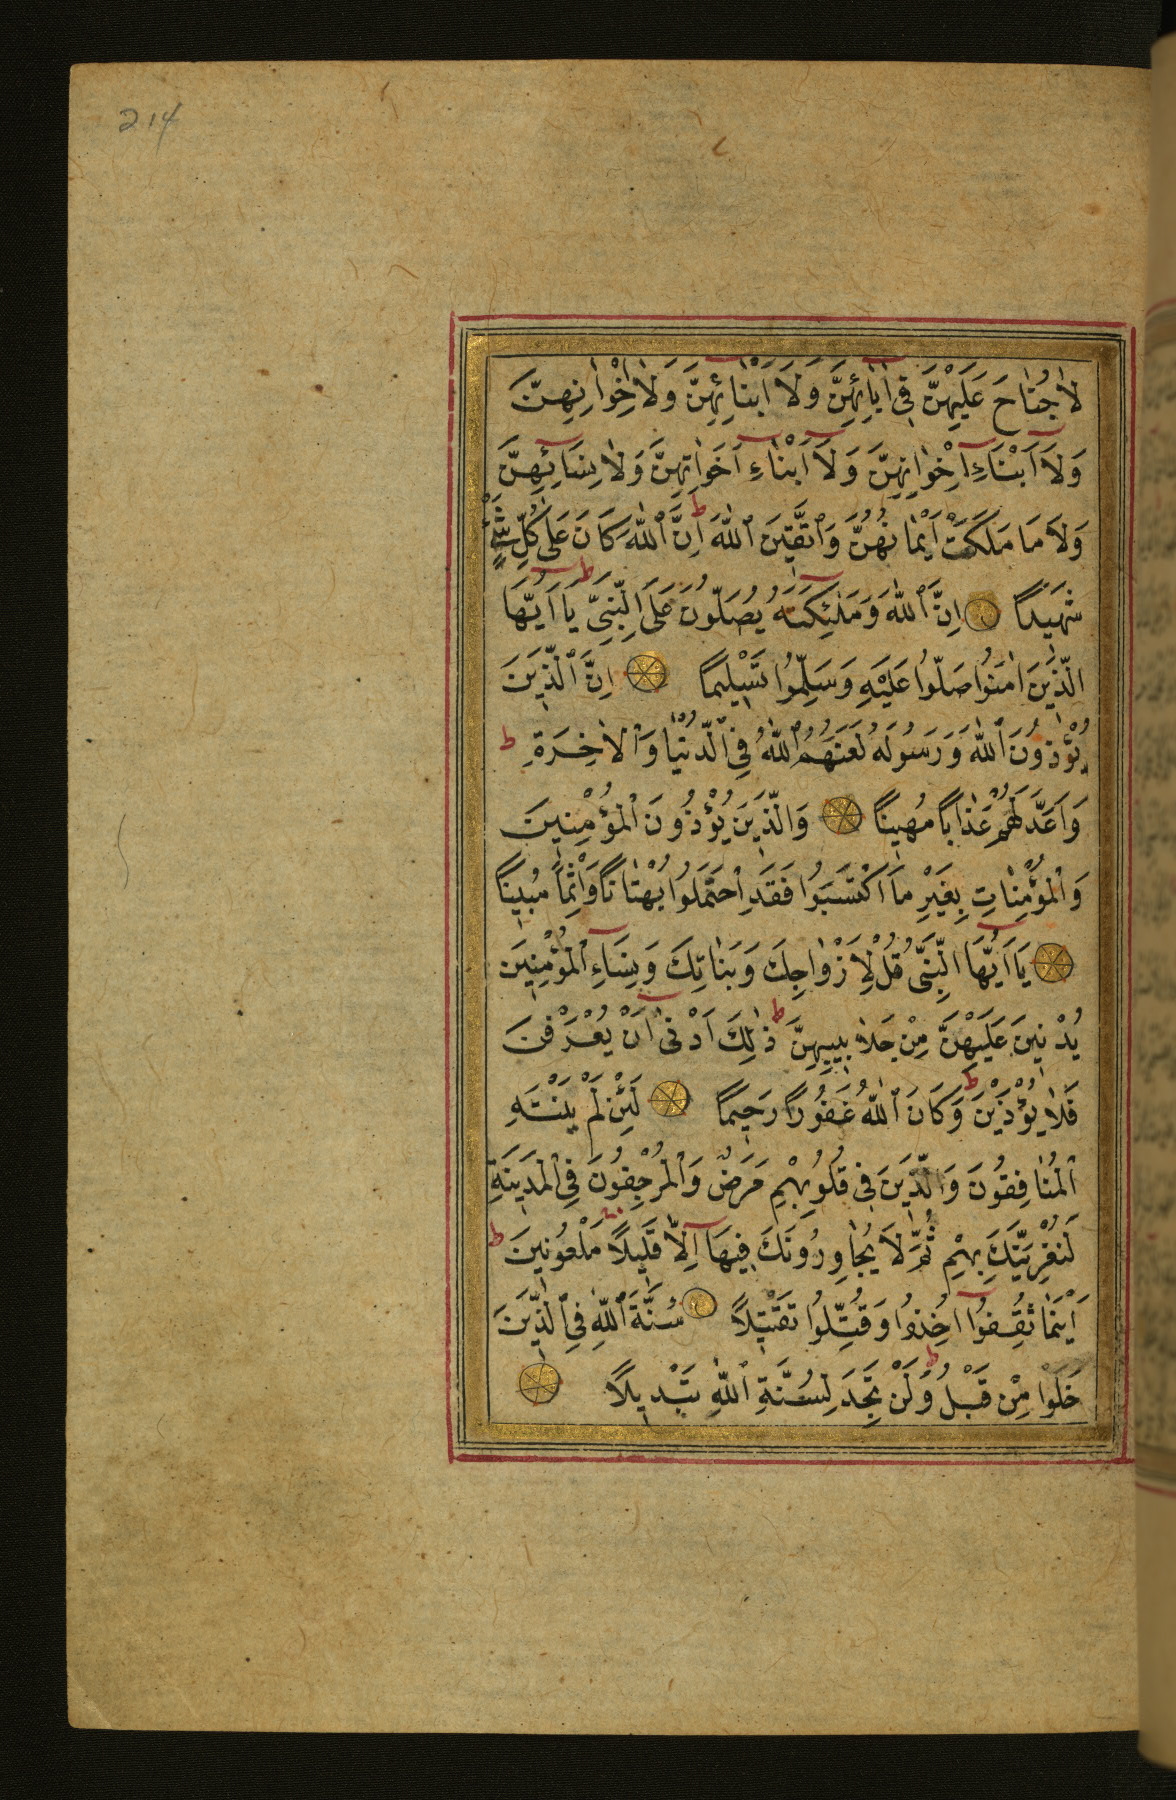 214
لَا جُنَاحَ عَلَيْهِنَّ فِي اٰبَائِهِنَّ وَلَا اَبْنَائِهِنَّ وَلَا اِخْوَانِهِنَّ
وَلَا اَبْنَاءِ اِخْوَانِهِنَّ وَلَا اَبْنَاءِ اَخَوَاتِهِنَّ وَلَا نِسَائِهِنَّ
وَلَا مَا مَلَكَتْ اَيْمَانُهُنَّ وَاتَّقِينَ اللّٰهَ ط اِنَّ اللّٰهَ كَانَ عَلٰى كُلِّ شَيْءٍ
شَهِيدًا اِنَّ اللّٰهَ وَمَلٰئِكَتَهُ يُصَلُّونَ عَلَى النَّبِيِّ ط يَا اَيُّهَا
الَّذِينَ اٰمَنُوا صَلُّوا عَلَيْهِ وَسَلِّمُوا تَسْلِيمًا اِنَّ الَّذِينَ
يُؤْذُونَ اللّٰهَ وَرَسُولَهُ لَعَنَهُمُ اللّٰهُ فِي الدُّنْيَا وَالْاٰخِرَةِ ط
وَاَعَدَّ لَهُمْ عَذَابًا مُهِينًا وَالَّذِينَ يُؤْذُونَ الْمُؤْمِنِينَ
وَالْمُؤْمِنَاتِ بِغَيْرِ مَا اكْتَسَبُوا فَقَدِ احْتَمَلُوا بُهْتَانًا وَاِثْمًا مُبِينًا
يَا اَيُّهَا النَّبِيُّ قُلْ لِاَزْوَاجِكَ وَبَنَاتِكَ وَنِسَاءِ الْمُؤْمِنِينَ
يُدْنِينَ عَلَيْهِنَّ مِنْ جَلَابِيبِهِنَّ ط ذٰلِكَ اَدْنٰى اَنْ يُعْرَفْنَ
فَلَا يُؤْذَيْنَ ط وَكَانَ اللّٰهُ غَفُورًا رَحِيمًا لَئِنْ لَمْ يَنْتَهِ
الْمُنَافِقُونَ وَالَّذِينَ فِي قُلُوبِهِمْ مَرَضٌ وَالْمُرْجِفُونَ فِي الْمَدِينَةِ
لَنُغْرِيَنَّكَ بِهِمْ ثُمَّ لَا يُجَاوِرُونَكَ فِيهَا اِلَّا قَلِيلًا مَلْعُونِينَ ط
اَيْنَمَا ثُقِفُوا اُخِذُوا وَقُتِّلُوا تَقْتِيلًا سُنَّةَ اللّٰهِ فِي الَّذِينَ
خَلَوْا مِنْ قَبْلُ ط وَلَنْ تَجِدَ لِسُنَّةِ اللّٰهِ تَبْدِيلًا